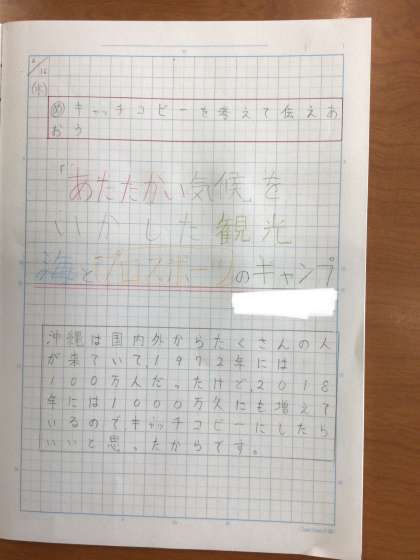 6/16
(水)
め キャッチコピーを考えて伝えあ
おう
「あたたかい気候を
いかした観光
海とプロスポーツのキャンプ
沖縄は国内外からたくさんの人
が来ていて、1972年には
100万人だったけど2018
年には1000万人にも増えて
いるのでキャッチコピーにしたら
いいと思ったからです。